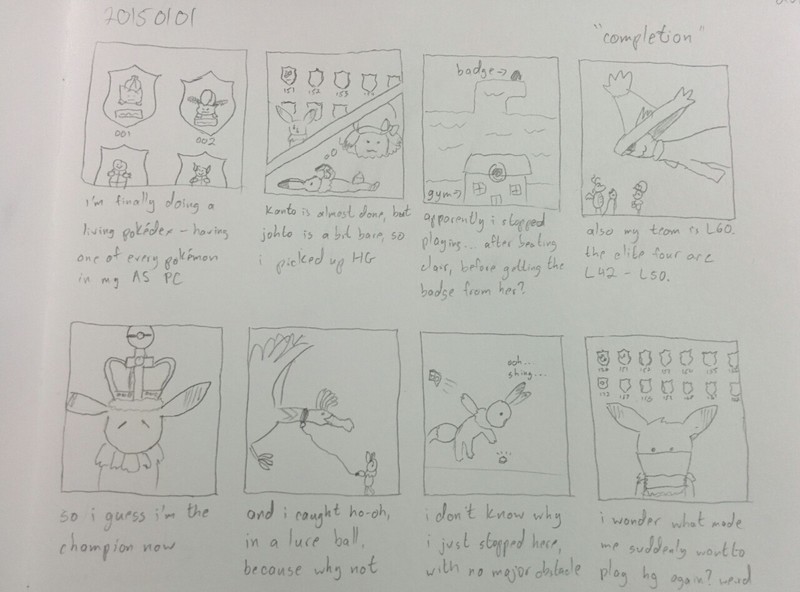 20150101
"completion"
001
002
i'm finally doing a
living pokédex – having
one of every pokémon
in my AS PC
151
152
153
154
kanto is almost done, but
johto is a bit bare, so
i picked up HG
badge→
gym→
apparently i stopped
playing... after beating
clair, before getting the
badge from her?
also my team is L60.
the elite four are
L42 – L50.
so i guess i'm the
champion now
and i caught ho-oh,
in a lure ball.
because why not
ooh...
shiny...
i don't know why
i just stopped here,
with no major obstacle
i wonder what made
me suddenly want to
play hg again? weird